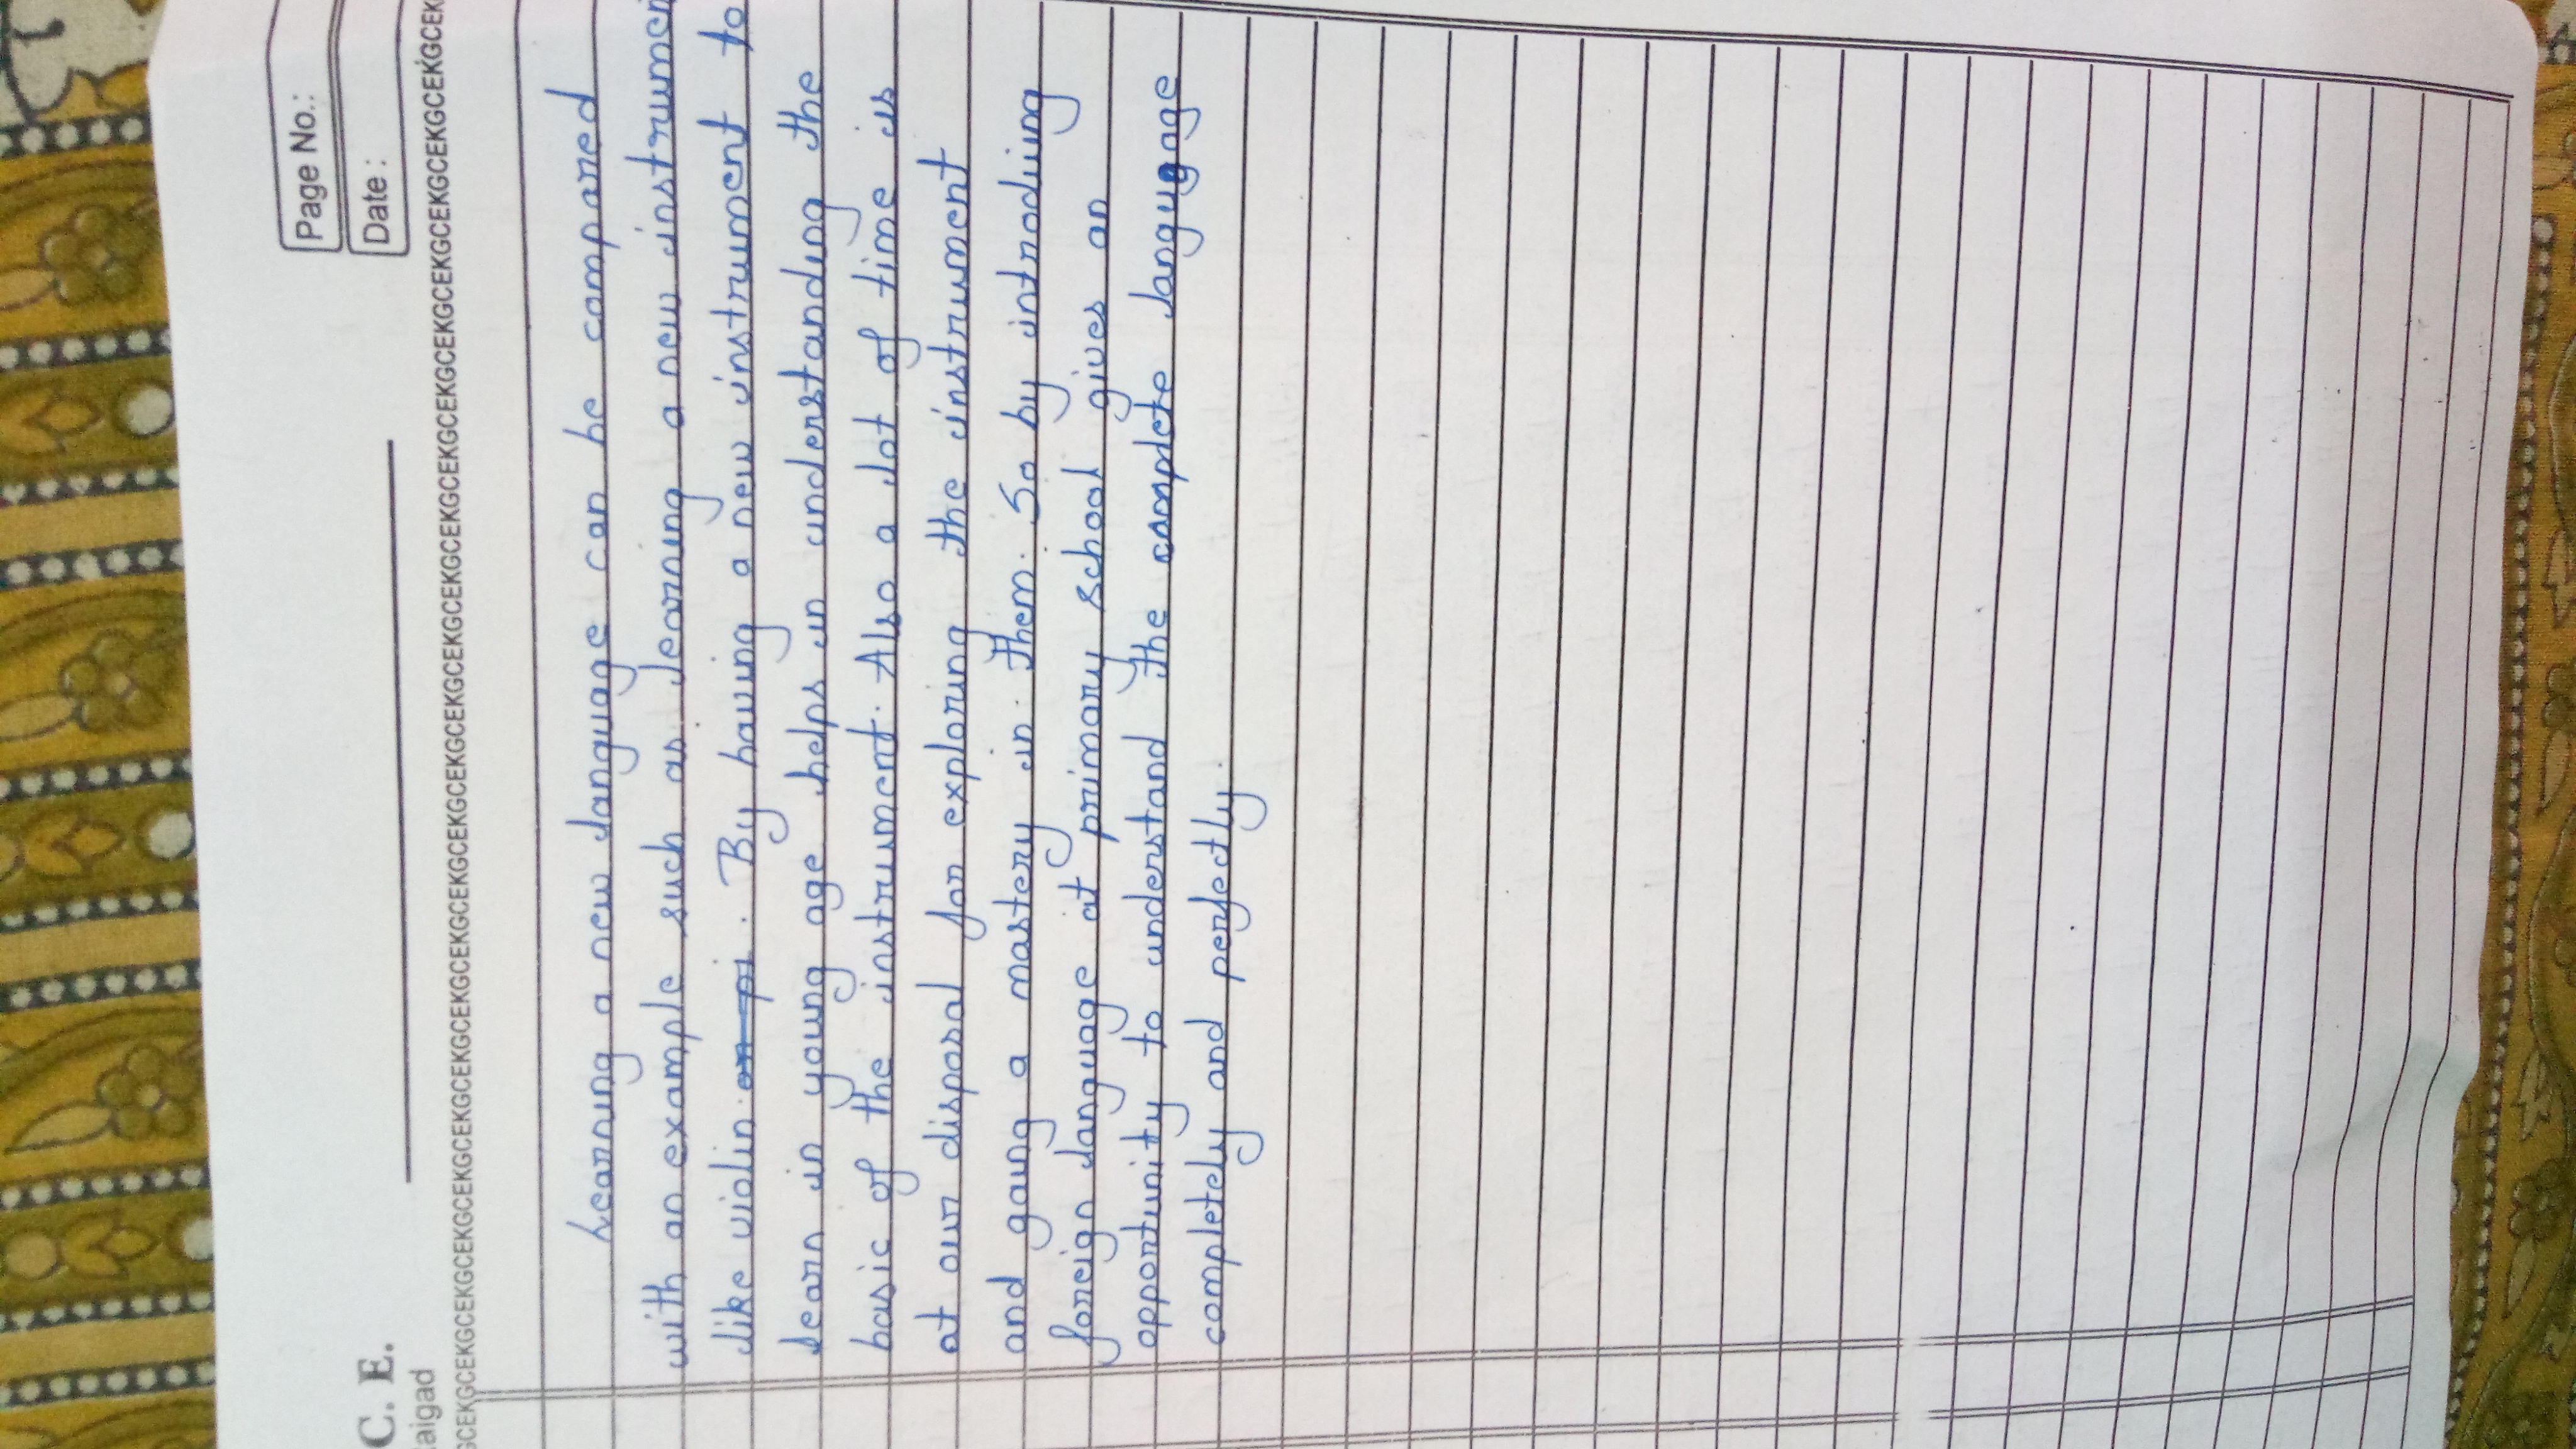 Page No.:
Date :
C. E.
aigad
GCEKGCEKGCEKGCEKGCEKGCEKGCEKGCEKGCEKGCEKGCEKGCEKGCEKGCEKGCEKGCEKGCEKGCEKGCEKGCEKGCEKGCEKGCEK
Learning a new language can be compared
with an example such as learning a new instrumen
like violin. or pi. By having a new instrument to
learn in young age helps in understanding the
basic of the instrument. Also a lot of time is
at our disposal for exploring the instrument
and gaing a mastery in them. So by introding
foreign language at primary school gives an
opportunity to understand the complete language
completely and perfectly.